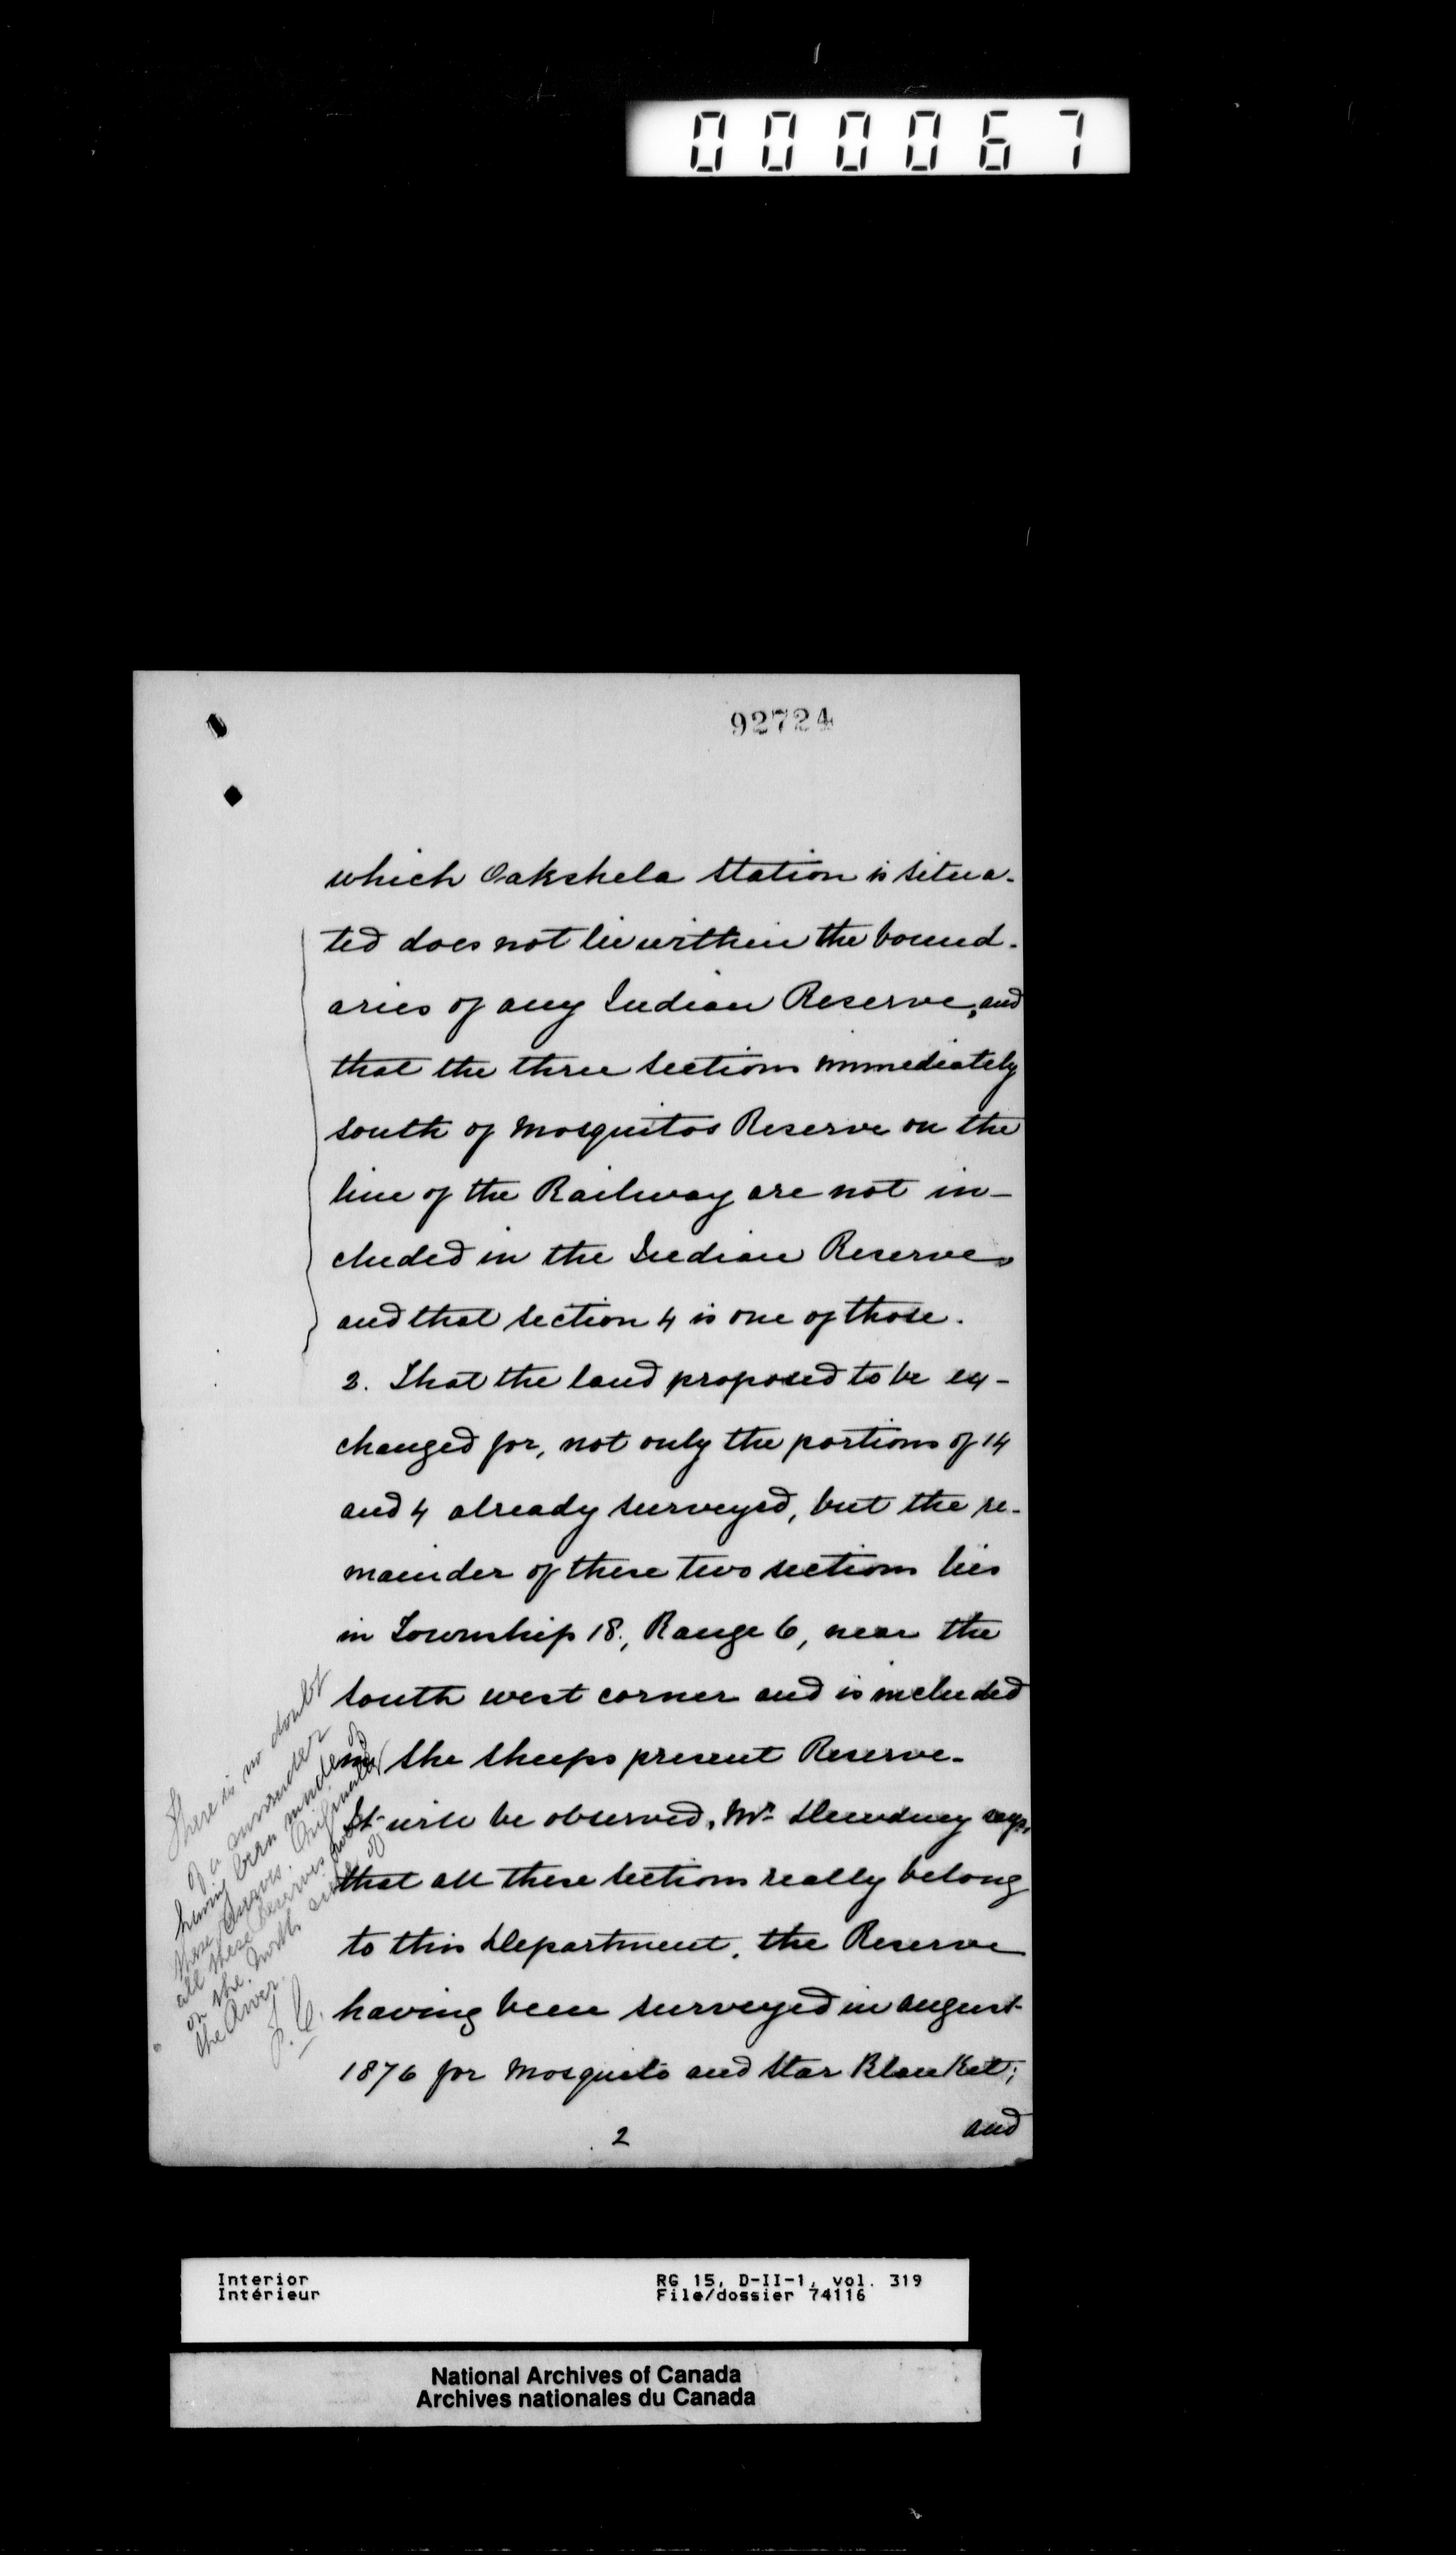 000067
92724
which Oakshela Station is situa-
ted does not lie within the bound-
aries of any Indian Reserve, and
that the three sections immediately
south of Mosquitos Reserve on the
line of the Railway are not in-
cluded in the Indian Reserves
and that section 4 is one of those.
2. That the land proposed to be ex-
changed for, not only the portions of 14
and 4 already surveyed, but the re-
mainder of these two sections lies
in Township 18, Range 6, near the
south west corner and is included
in the Sheeps present Reserve.
It will be observed, Mr. Dewdney says,
that all these sections really belong
to this Department, the Reserve
having been surveyed in August
1876 for Mosquito and Star Blanket;
and
2
There is no doubt
of a surrender
having been made of
these Reserves. Originally
all these Reserves
on the North side of
the River.
P. C.
Interior
Intérieur
RG 15, D-II-1, vol. 319
File/dossier 74116
National Archives of Canada
Archives nationales du Canada